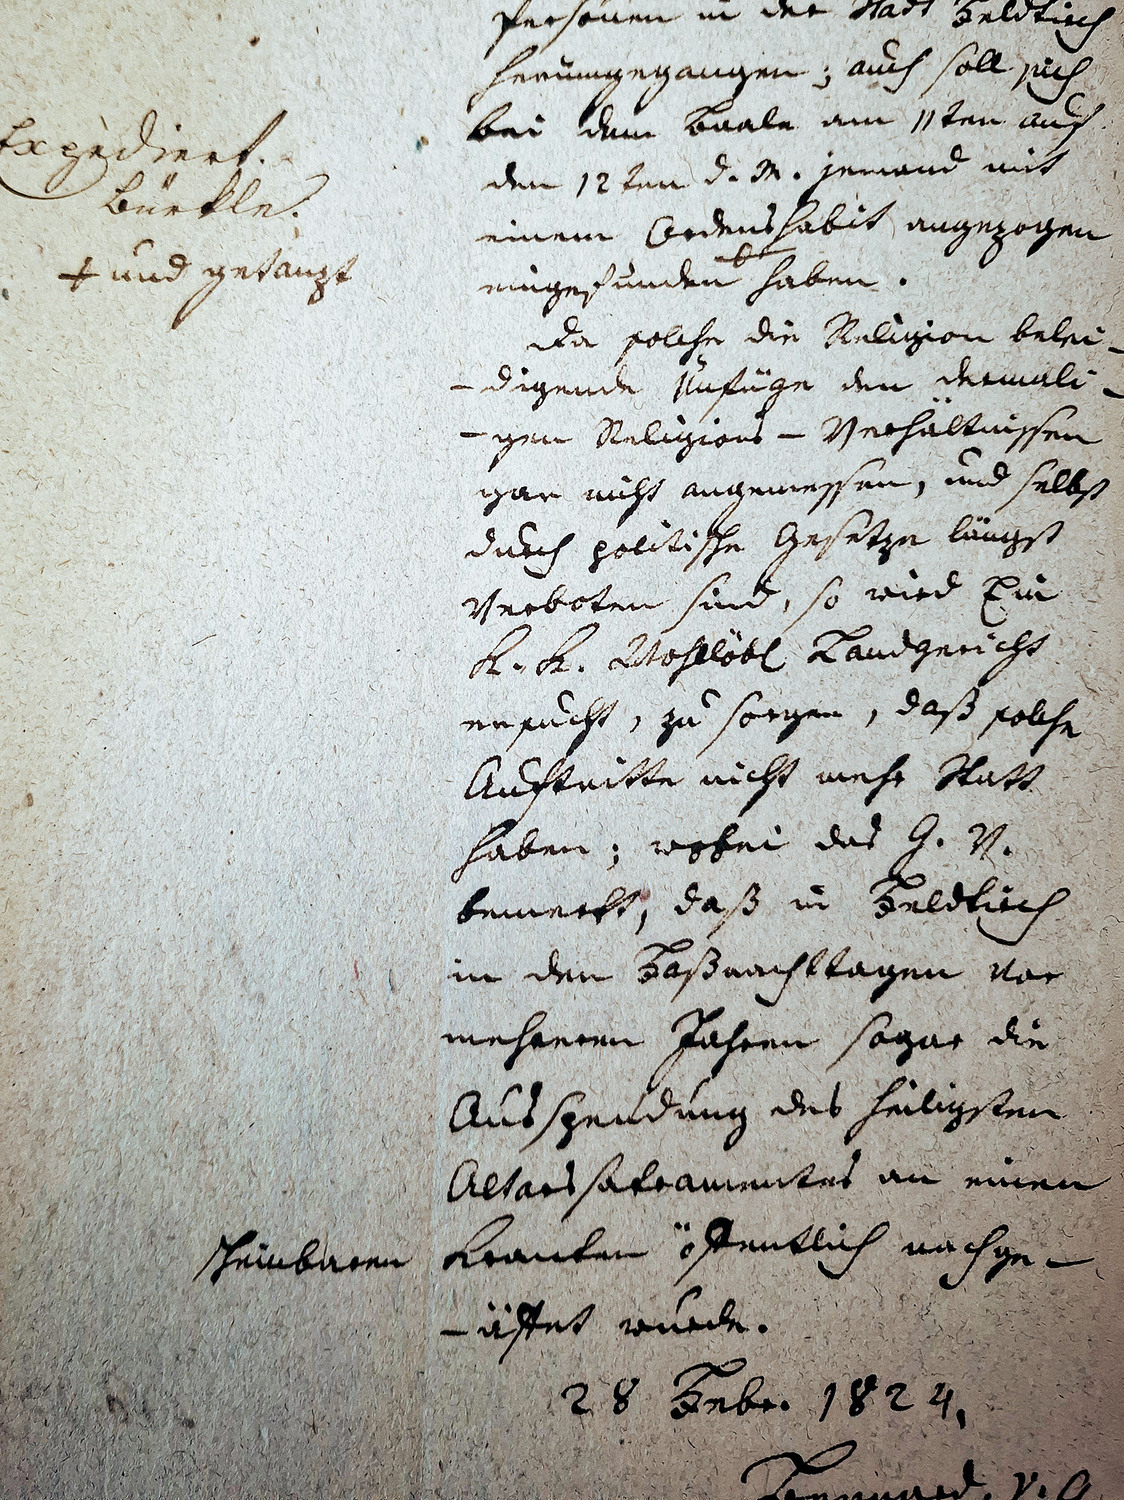 Personen in der Stadt Feldkirch
herumgegangen; auch soll sich
bei dem Baale am 11ten auf
den 12ten d. M. jemand mit
einem Ordenshabit angezogen
eingefunden haben.
Expediert.
Bürkle.
+ und getanzt
Da solche die Religion belei-
-digende Unfüge den dermali-
-gen Religions-Verhältnissen
gar nicht angemessen, und selbst
durch politische Gesetze längst
Verboten sind, so wird Ein
K. K. Wohllöbl Landgericht
ersucht, zu sorgen, daß solche
Auftritte nicht mehr Statt
haben; wobei das G. V.
bemerkt, daß in Feldkirch
in den Faßnachttagen vor
mehreren Jahren sogar die
Ausspendung des heiligsten
Altarssakramentes an einen
scheinbaren Kranken öffentlich nachge-
-äffet wurde.
28 Febr. 1824.